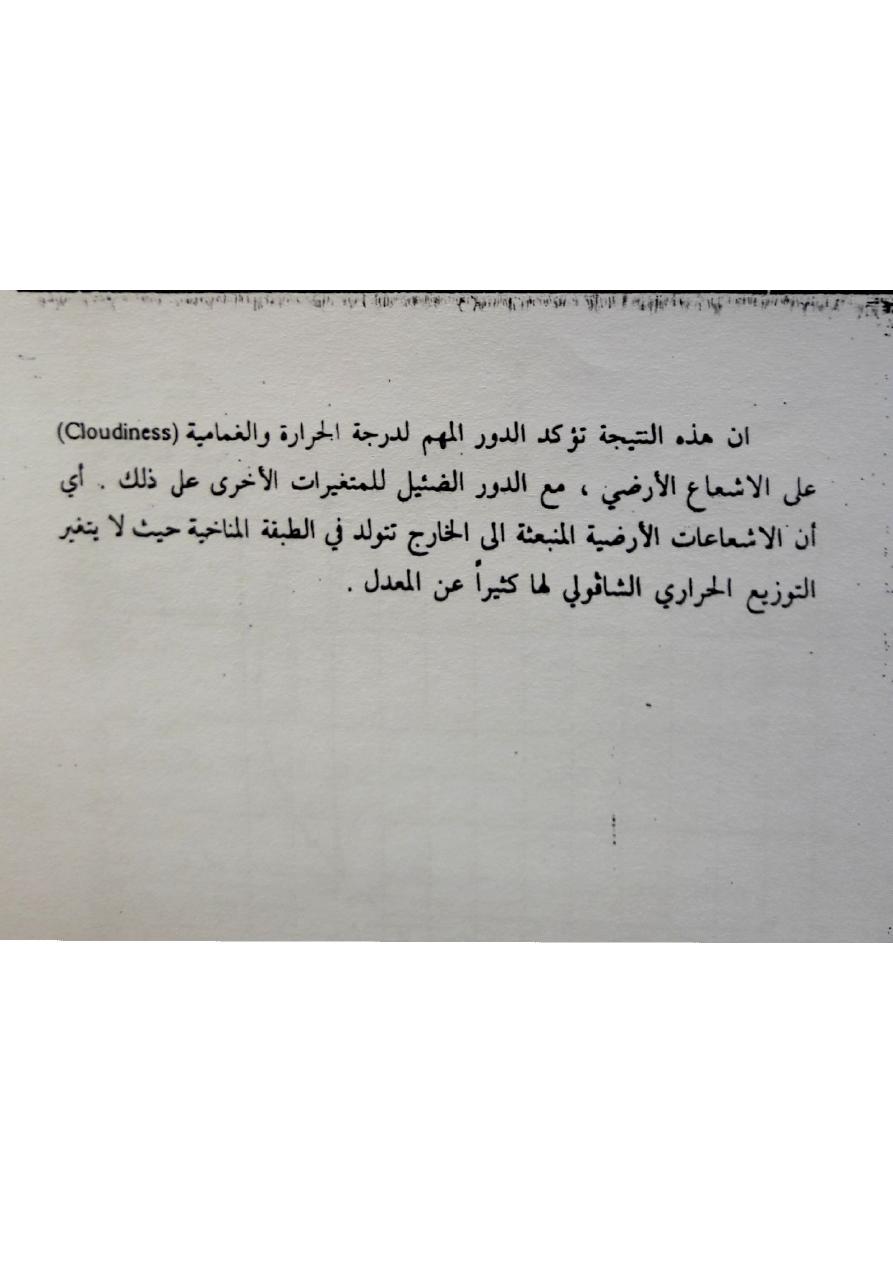 ان هذه النتيجة تؤكد الدور المهم لدرجة الحرارة والغمامية (Cloudiness)
على الاشعاع الأرضي ، مع الدور الضئيل للمتغيرات الأخرى على ذلك . أي
أن الاشعاعات الأرضية المنبعثة الى الخارج تتولد في الطبقة المناخية حيث لا يتغير
التوزيع الحراري الشاقولي لها كثيراً عن المعدل .